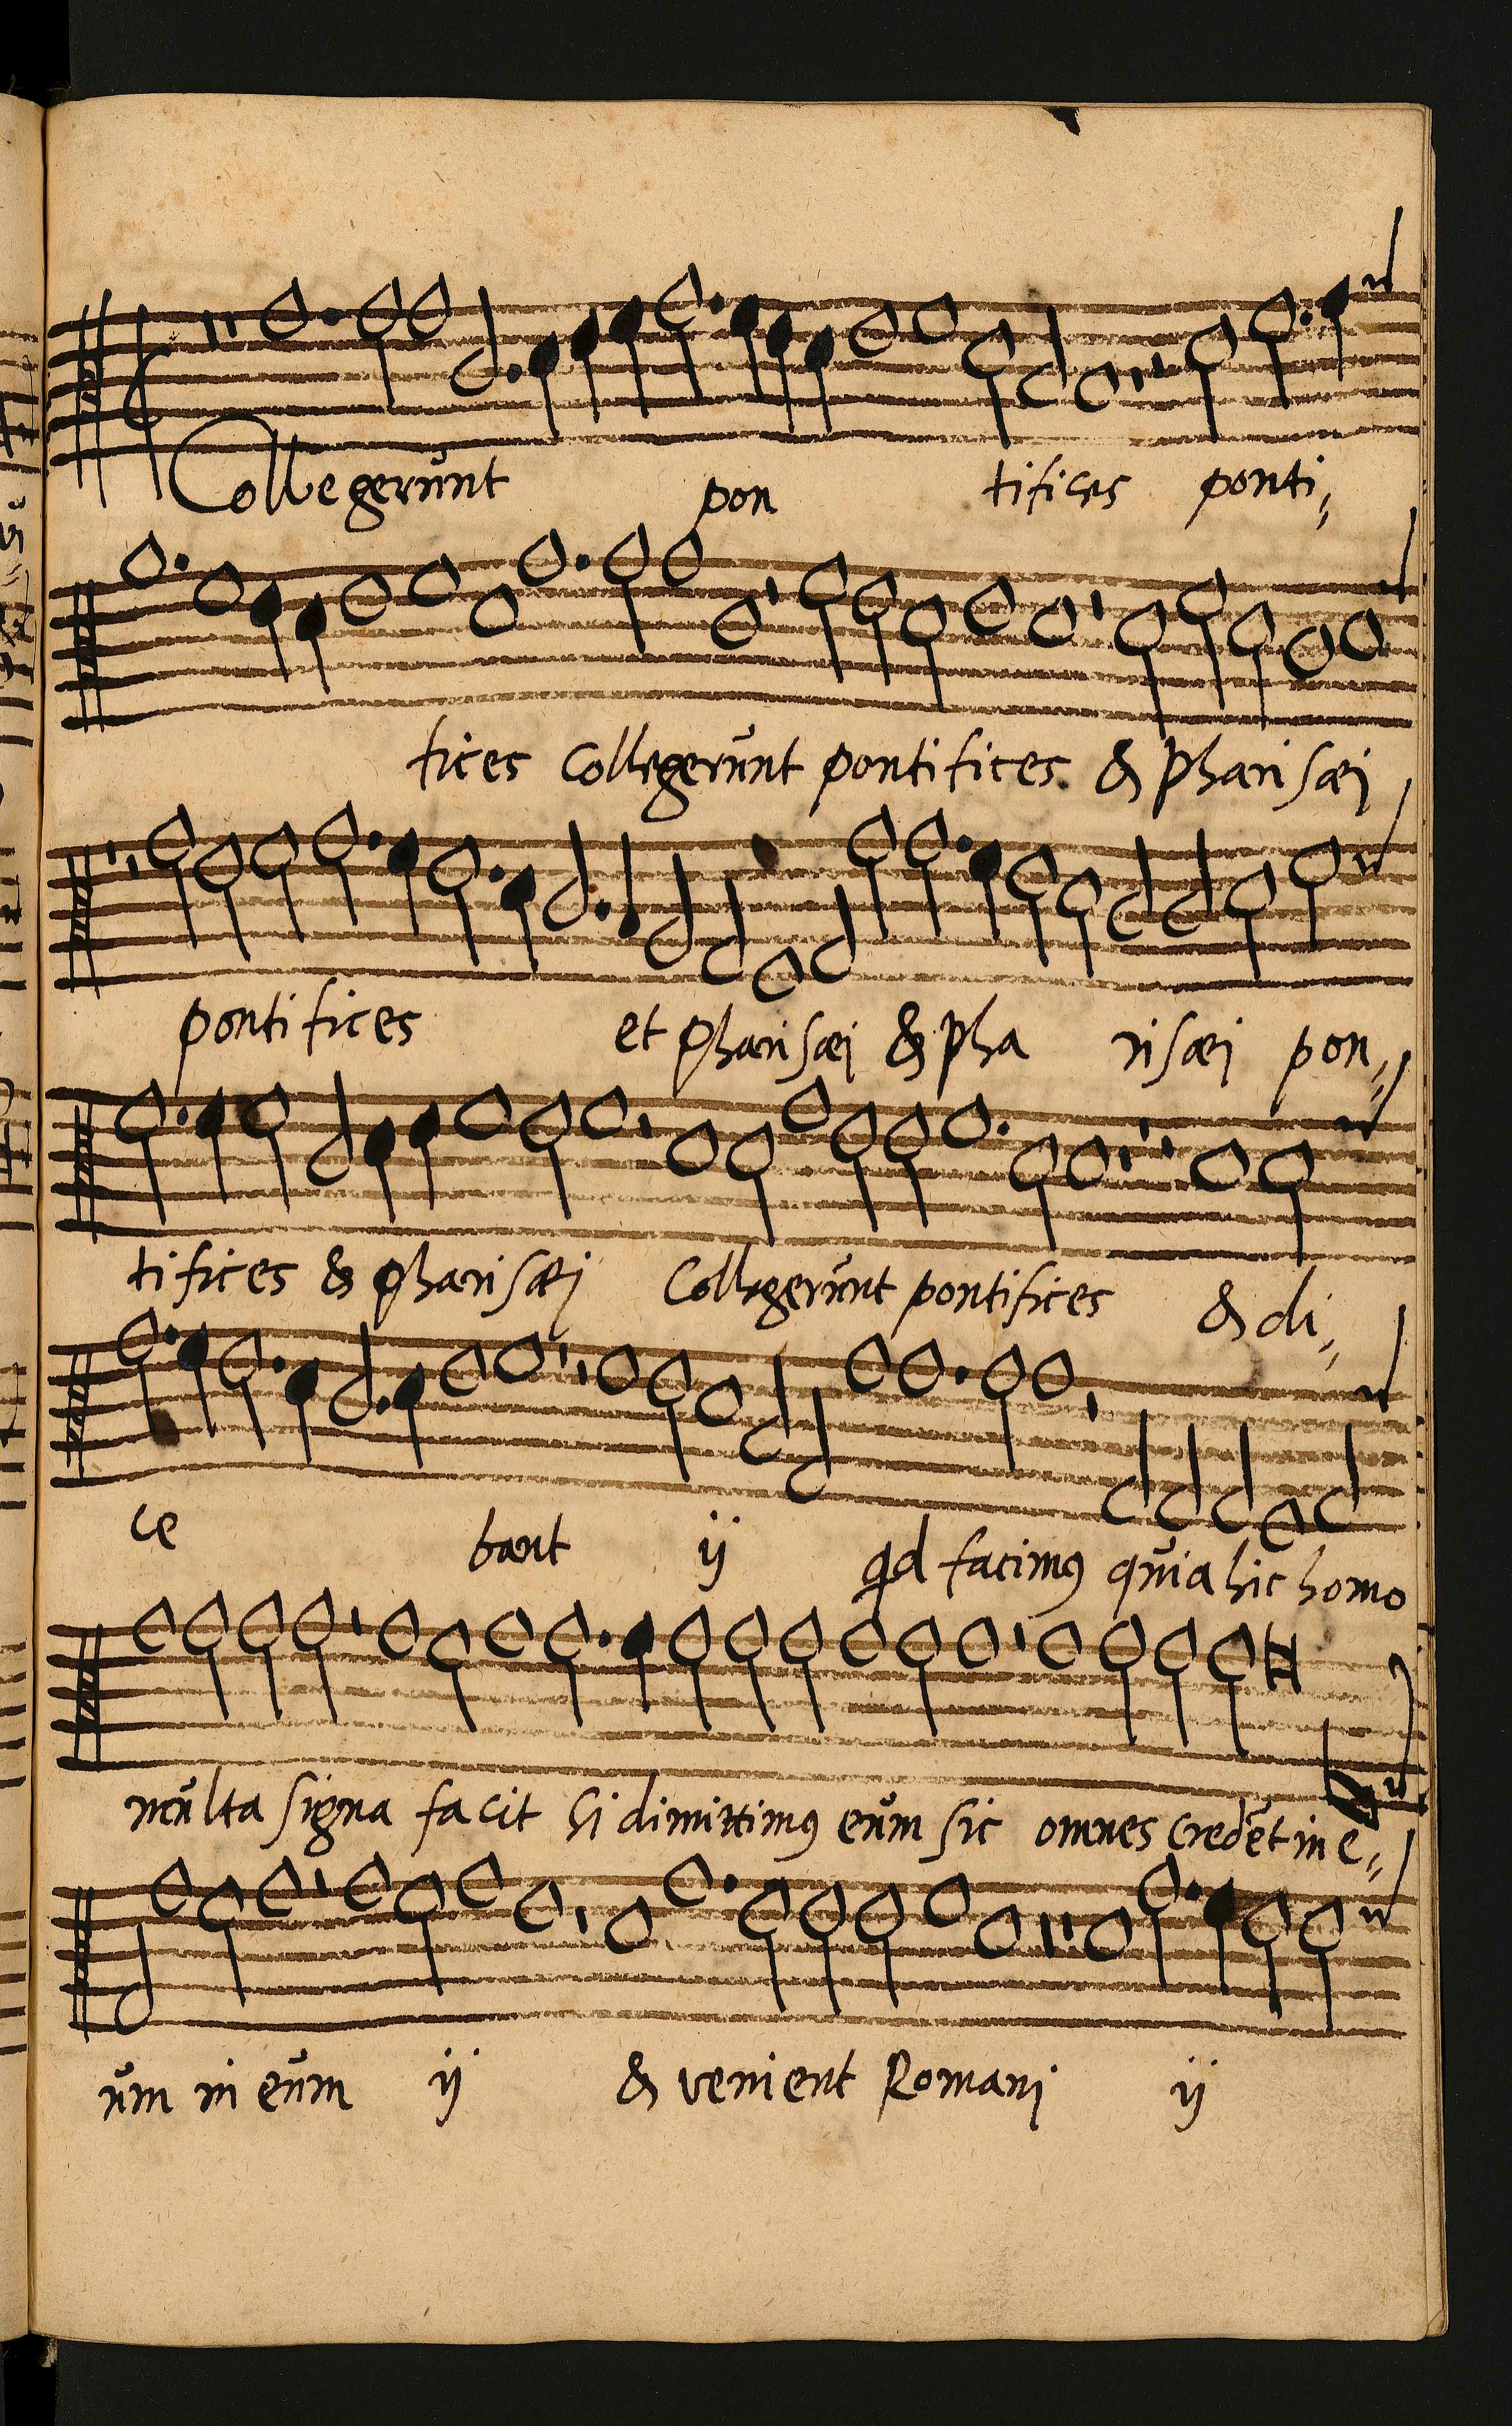 Collegerunt pon tifices ponti,,
fices Collegerunt pontifices. & Pharisæi
pontifices et Pharisæi & Pha risæi pon,,
tifices & Pharisæi Collegerunt pontifices & di,,
ce bant ij qd facimꝯ quia hic homo
multa signa facit si dimittimꝯ eum sic omnes credēt in e,,
um in eum ij & venient Romani ij